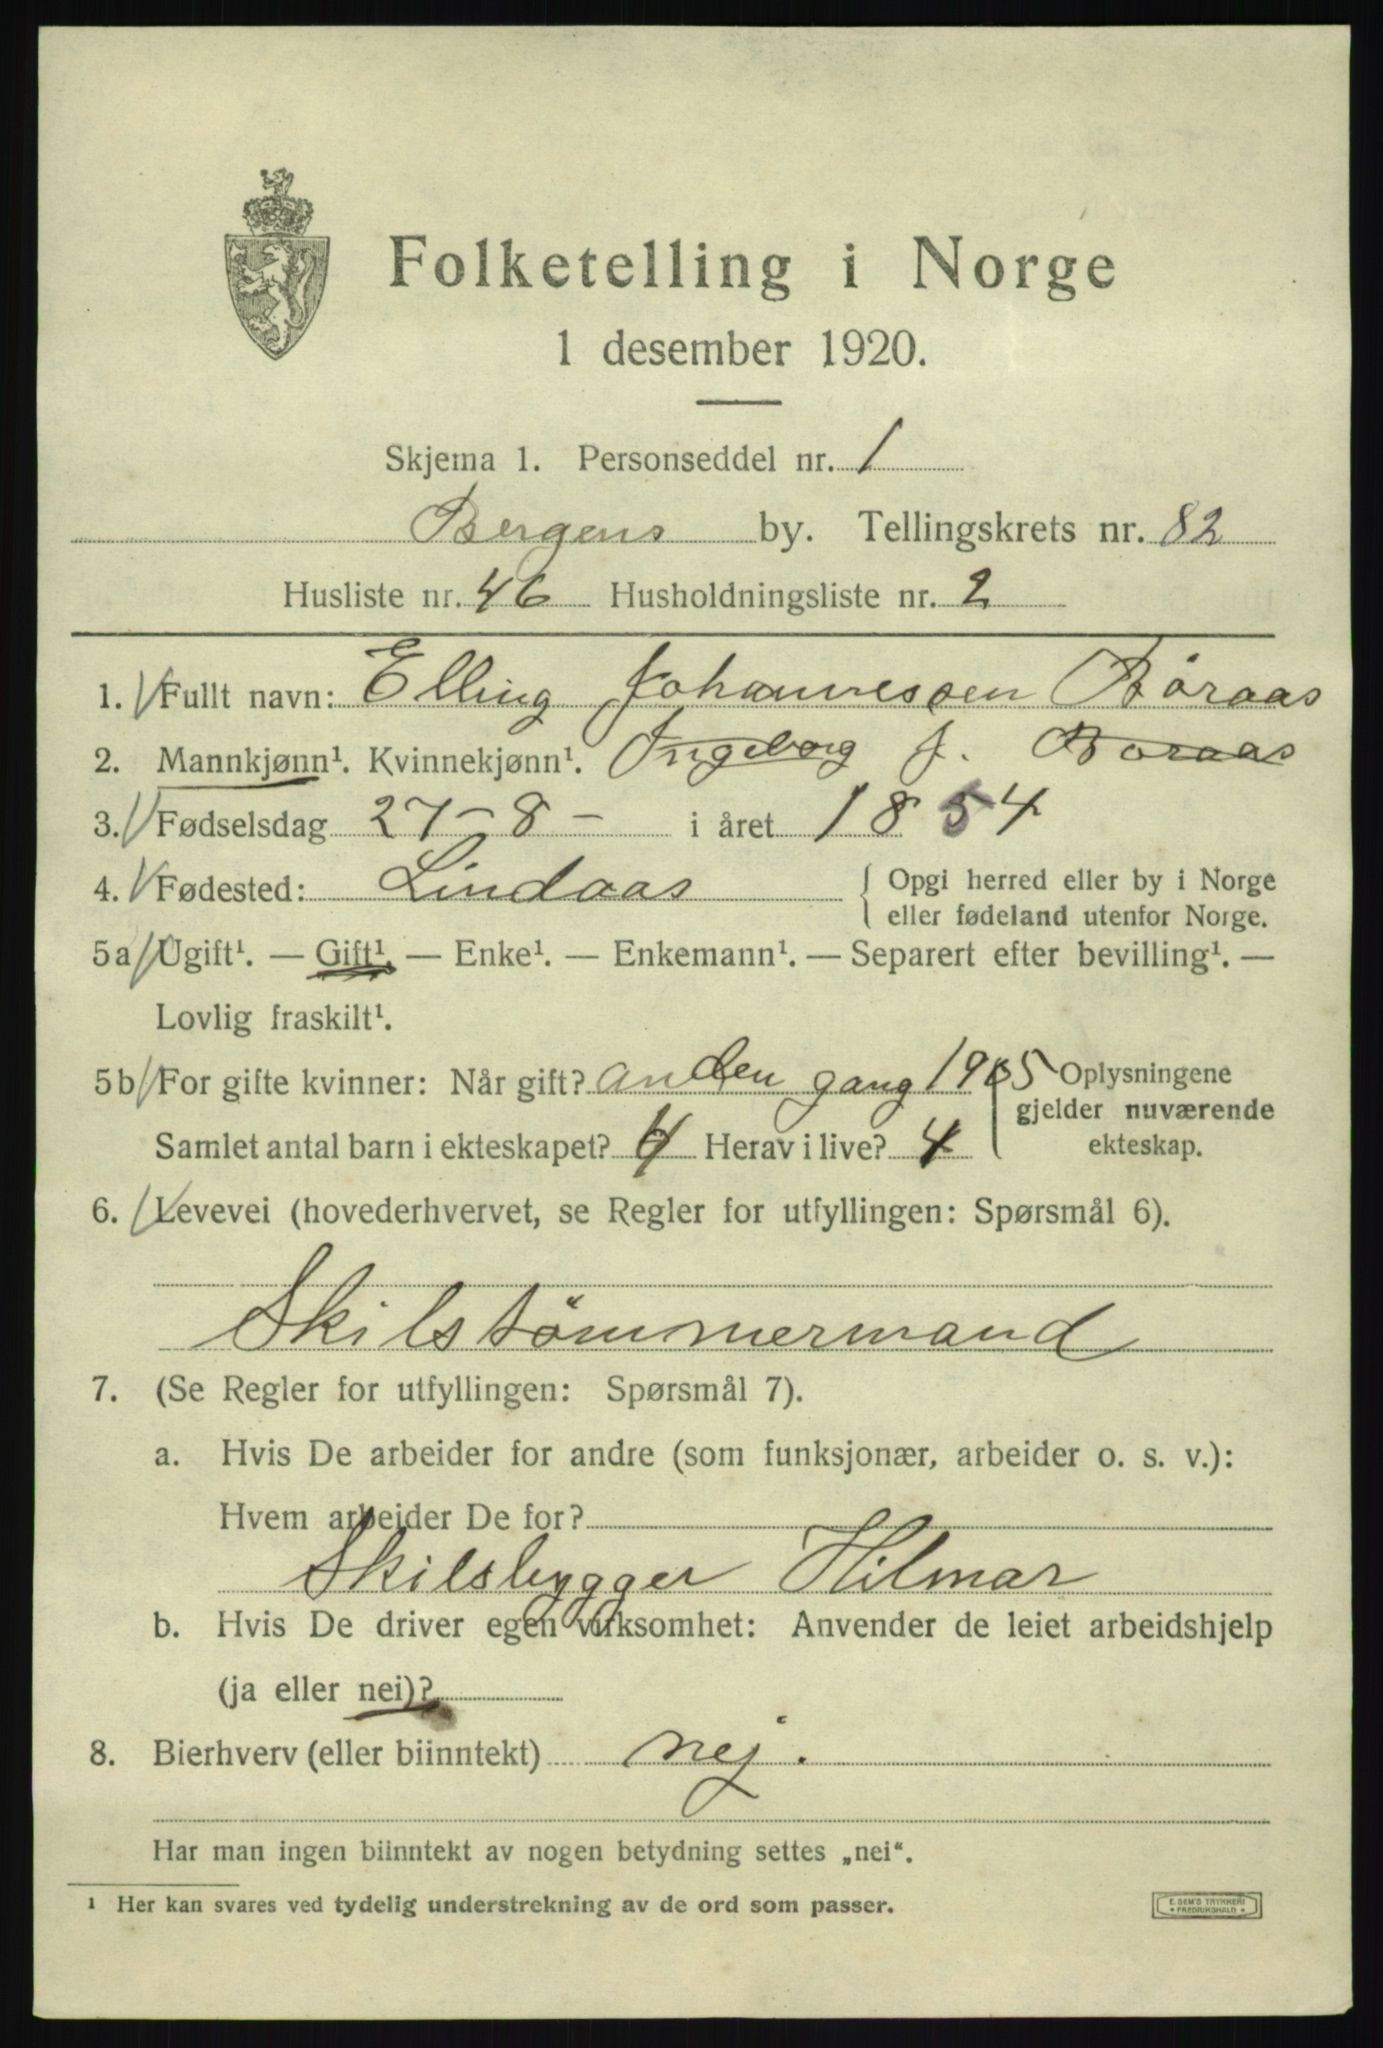 Folketelling i Norge
1 desember 1920.
Skjema 1. Personseddel nr. 1
Bergens by. Tellingskrets nr. 82
Husliste nr. 46 Husholdningsliste nr. 2
1. Fullt navn: Elling Johannessen Børaas
2. Mannkjønn¹. Kvinnekjønn¹. Ingeborg J. Boraas
3. Fødselsdag 27-8- i året 1854
4. Fødested: Lindaas { Opgi herred eller by i Norge
eller fødeland utenfor Norge.
5a Ugift¹. — Gift¹. — Enke¹. — Enkemann¹. — Separert efter bevilling¹. —
Lovlig fraskilt¹.
5b For gifte kvinner: Når gift? anden gang 1905 Oplysningene
gjelder nuværende
Samlet antal barn i ekteskapet? 4 Herav i live? 4 ekteskap.
6. Levevei (hovederhvervet, se Regler for utfyllingen: Spørsmål 6).
Skilstømmermand
7. (Se Regler for utfyllingen: Spørsmål 7).
a. Hvis De arbeider for andre (som funksjonær, arbeider o. s. v.):
Hvem arbeider De for?
Skilsbygger Hilmar
b. Hvis De driver egen virksomhet: Anvender de leiet arbeidshjelp
(ja eller nei)?
8. Bierhverv (eller biinntekt) nej.
Har man ingen biinntekt av nogen betydning settes „nei“.
1 Her kan svares ved tydelig understrekning av de ord som passer.
E. SEM'S TRYKKERI
* FREDRIKSHALD *